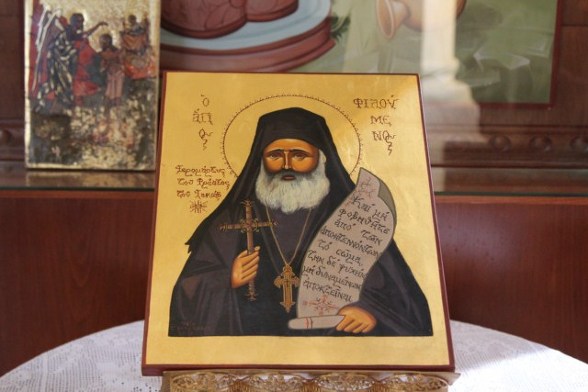 Ὁ
ἍΓΙ
Ος
ΦΙΛΟΥ
ΜΕ
ΝΟς
Ἱερομάρτυς
τοῦ Φρέατος
τοῦ Ἰακώβ
Καὶ μὴ
φοβηθῆτε
ἀπὸ τῶν
ἀποκτεννόντων
τὸ σῶμα,
τὴν δὲ ψυχὴν
μὴ δυναμένων
ἀποκτεῖναι